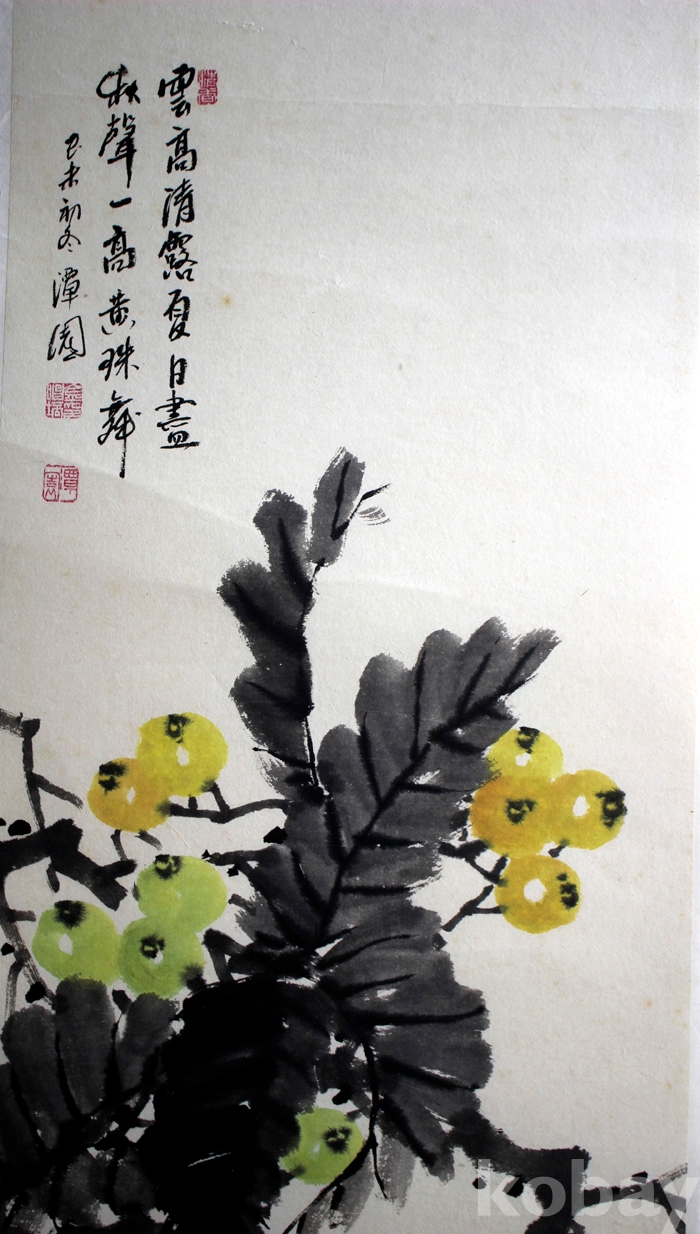 雲高清露夏日盡
秋聲一高黃珠舞
己未初冬 潭園
kobay